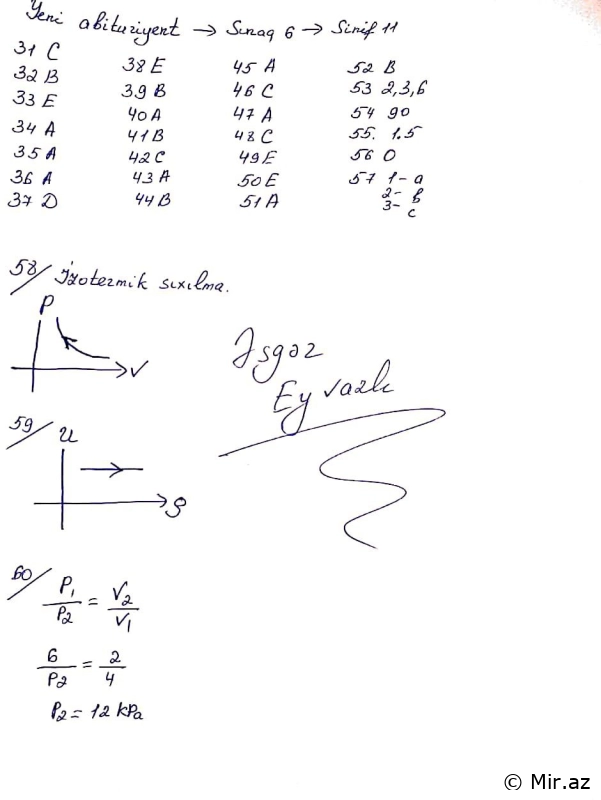 Yeni abituriyent → Sınaq 6 → Sinif 11
31 C
32 B
33 E
34 A
35 A
36 A
37 D
38 E
39 B
40 A
41 B
42 C
43 A
44 B
45 A
46 C
47 A
48 C
49 E
50 E
51 A
52 B
53 2,3,6
54 90
55. 1.5
56 0
57 1-a
2- b
3- c
58/ İzotermik sıxılma.
P
V
Əsgər
Eyvazlı
59/
U
ρ
60/ P₁/P₂ = V₂/V₁
6/P₂ = 2/4
P₂ = 12 kPa
© Mir.az